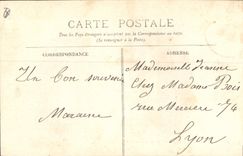 CARTE POSTALE
Tous les Pays étrangers n'acceptent pas la Correspondance au recto
(Se renseigner à la Poste)
CORRESPONDANCE
ADRESSE
Un bon souvenir
Mademoiselle Jeanne
Chez Madame Bois
rue 74
Lyon